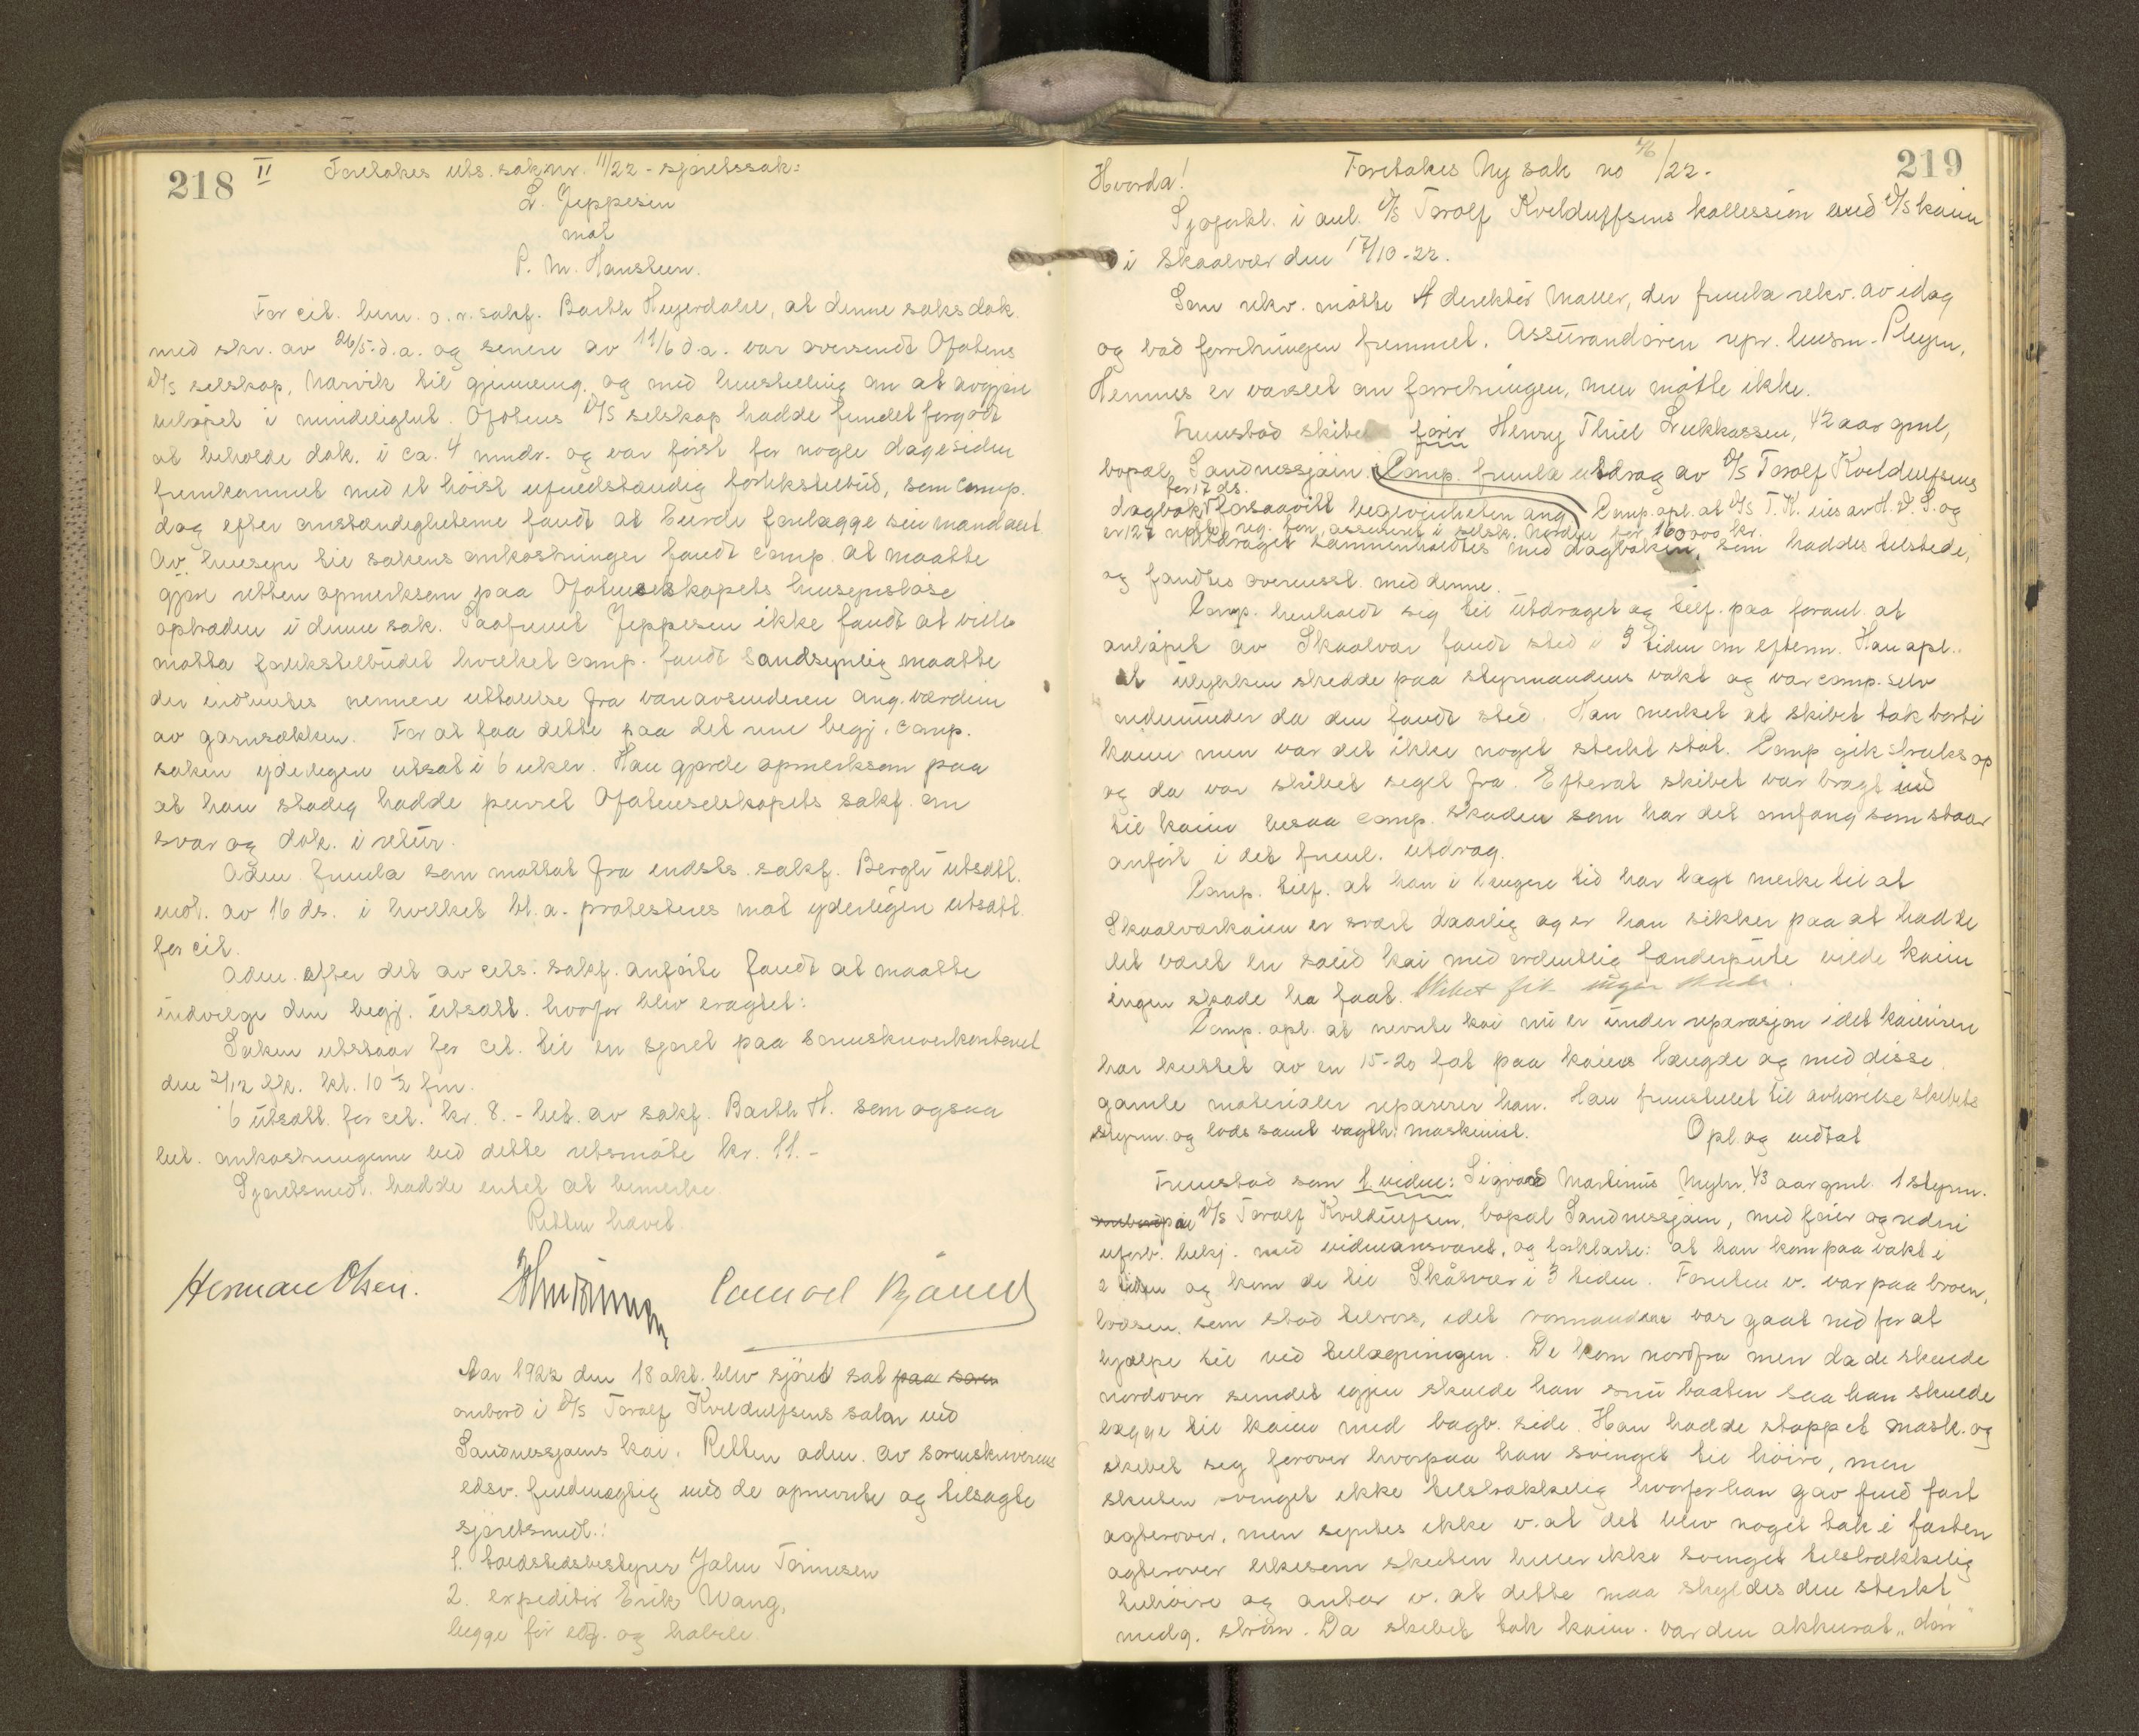 218 II Foretokes uts. sak nr. 11/22 - sjøretssak:
L. Jeppesen
mot
P. M. Hansteen.
For cit. bem. o.r. sakf. Barth Heyerdahl, at denne saks dok.
med skr. av 26/5 d.a. og senere av 11/6 d.a. var oversendt Ofotens
D/S selskap, Narvik til gjennemg. og med henstilling om at avgjøre
beløpet i mindelighet. Ofotens D/S selskap hadde fundet forgodt
at beholde dok. i ca. 4 mndr. og var først for nogle dage siden
fremkommet med et høist ufyldestgjørende forlikstilbud, som comp.
dog efter omstændigheterne fandt at burde forelægge sin mandant.
Av hensyn til sakens omkostninger fandt comp. at maatte
gjøre retten opmerksom paa Ofotenselskapets hensynsløse
optræden i denne sak. Saafremt Jeppesen ikke fandt at ville
motta forlikstilbudet hvilket comp. fandt sandsynlig maatte
der indhentes nermere uttalelse fra vareavsenderen ang. værdien
av garnsækken. For at faa dette paa det rene begj. comp.
saken yderligere utsat i 6 uker. Han gjorde opmerksom paa
at han stadig hadde purret Ofotenselskapets sakf. om
svar og dok. i retur.
Adm. freml. som mottat fra indsts. sakf. Bergh utsatt.
endv. av 16 ds. i hvilket bl.a. protesteres mot yderligere utsatt.
for cit.
Adm. efter det av cits. sakf. anførte fandt at maatte
indvilge den begj. utsatt. hvorfor blev eragtet:
Saken utstaar for cit. til en sjøret paa sorenskriverkontoret
den 2/12 ftk. kl. 10 ½ fm.
6 utsatt. for cit. kr. 8.- bet. av sakf. Barth H. som ogsaa
bet. omkostningerne ved dette retsmøte kr. 11.-
Sjøretsmedl. hadde intet at bemerke.
Retten hævet.
Herman Olsen.
Aar 1922 den 18 okt. blev sjøret sat paa soren
ombord i D/S Torolf Kveldulfsens salon ved
Sandnessjøens kai. Retten adm. av sorenskriverens
edsv. fuldmægtig med de opnevnte og tilsagte
sjøretsmedl.:
1. toldstedsbestyrer John Tønnesen
2. expeditør Erik Wang,
begge før edf. og habile.
219
Hvorda! Foretokes Ny sak no 46/22.
Sjøforkl. i anl. D/S Torolf Kveldulfsens kollesion med D/S kaien
i Skaalvær den 17/10-22.
Som rekv. møtte direktør Møller, der fremla rekv. av idag
og bad forretningen fremmet. Assurandøren repr. lensm. Pleym,
Hemnes er varslet om forretningen, men møtte ikke.
Fremstod skibets fører Henry Thiel Lukkassen, 42 aar gml,
bopæl Sandnessjøen. Comp. fremla utdrag av D/S Torolf Kveldulfsens
for 17 ds.
dagbok forsaavitt begivenheten ang. Comp. opl. at D/S T.K. eies av H.D.S. og
er 127 netto reg. ton, assureret i selsk. Norden for 160000 kr.
Utdraget sammenholdtes med dagboken, som haddes tilstede,
og fandtes overenst. med denne.
Comp. henholdt seg til utdraget og tilf. paa foranl. at
anløpet av Skaalvær fandt sted i 3 tiden om efterm. Han opl.
at ulykken skedde paa styrmandens vakt og var comp. selv
nedenunder da den fandt sted. Han merket at skibet tok borti
kaien men var det ikke noget sterkt støt. Comp gik straks op
og da var skibet seget fra. Efterat skibet var bragt ind
til kaien besaa comp. skaden som har det omfang som staar
anført i det freml. utdrag.
Comp. tilf. at han i længere tid har lagt merke til at
Skaalværkaien er svært daarlig og er han sikker paa at hadde
det været en solid kai med ordentlig fenderpute vilde kaien
ingen skade ha faat. Skibet fik ingen skade.
Comp. opl. at nevnte kai nu er under reparasjon idet kaieieren
har kuttet av en 15-20 fot paa kaiens længde og med disse
gamle materialer reparerer han. Han fremstillet til avhørelse skibets
styrm. og lods samt vagth. maskinist. Opl. og vedtat
Fremstod som 1. vidne: Sigvard Martinus Myhr, 43 aar gml. 1 styrm.
ombord paa D/S Torolf Kveldulfsen, bopæl Sandnessjøen, med fører og rederi
uforb. bekj. med vidneansvaret, og forklarte: at han kom paa vakt i
2 tiden og kom de til Skålvær i 3 tiden. Foruten v. var paa broen,
lodsen, som stod tilrors, idet rormanden var gaat ned for at
hjælpe til ved tillægningen. De kom nordfra men da de skulde
nordover sundet igjen skulde han snu baaten saa han skulde
lægge til kaien med bagb. side. Han hadde stoppet mask. og
skibet seg forover hvorpaa han svinget til høire, men
skuten svinget ikke tilstrækkelig hvorfor han gav fuld fart
agterover, men syntes ikke v. at det blev noget tak i farten
agterover likesom skuten heller ikke svinget tilstrækkelig
tilhøire og antar v. at dette maa skyldes den sterke
medg. strøm. Da skibet tok kaien var den akkurat „død"